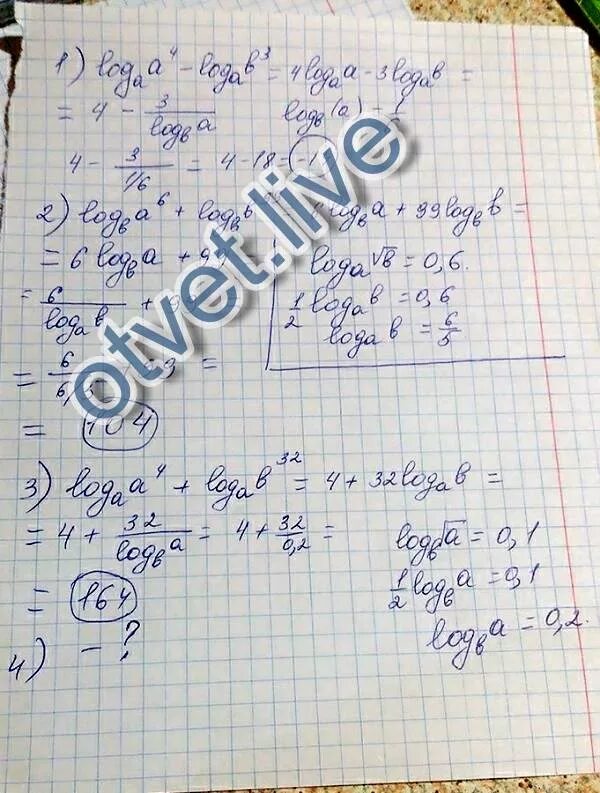 1) log_a a^4 - log_a b^3 = 4log_a a - 3log_a b =
= 4 - 3/log_b a log_b(a) = 1/6
4 - 3/(1/6) = 4 - 18 =
2) log_b a^6 + log_b b = log_b a + 99log_b b =
= 6log_b a + 99
= 6/log_a b + 99
= 6/
= 104
log_a √b = 0,6.
1/2 log_a b = 0,6
log_a b = 6/5
3) log_a a^4 + log_a b^32 = 4 + 32log_a b =
= 4 + 32/log_b a = 4 + 32/0,2 =
= 164
log_b √a = 0,1
1/2 log_b a = 0,1
log_b a = 0,2.
4) - ?
otvet.live